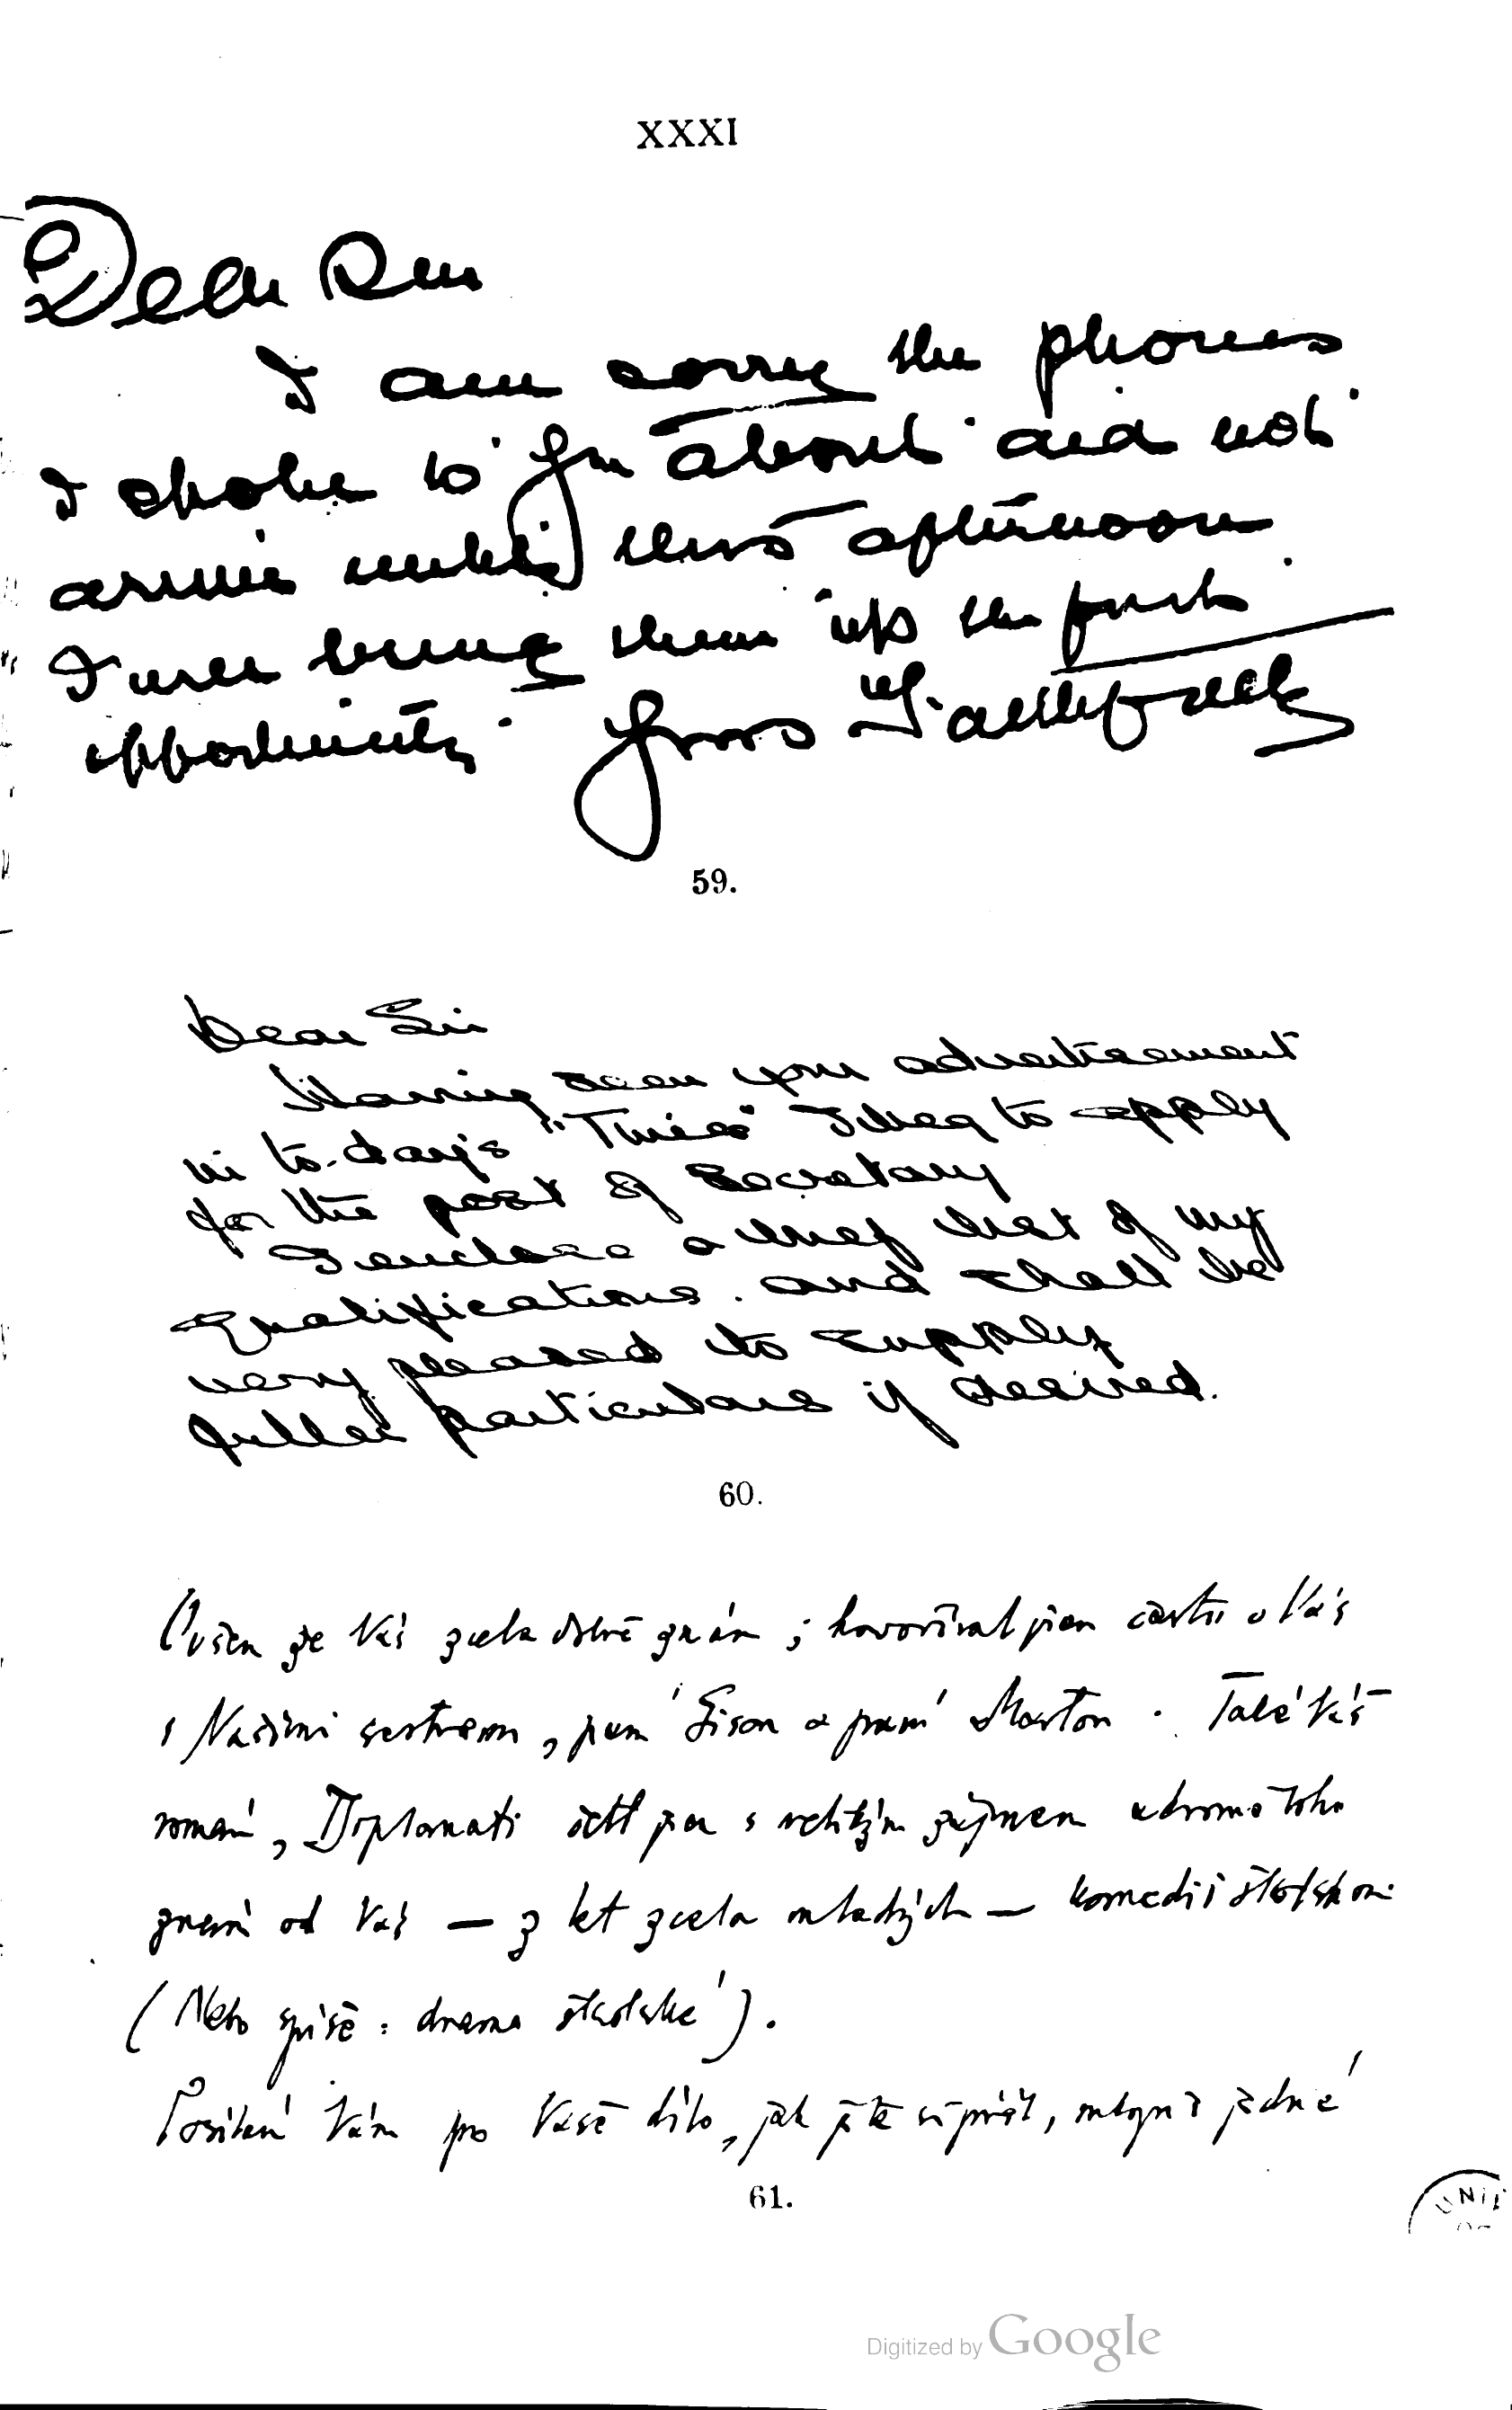 XXXI
Dear Sir
I am sorry the phones
I spoke to you about did not
arrive until this afternoon
I will bring them up the first
opportunity Yours Faithfully
59.
Dear Sir
Having seen your advertisement
in to-day's "Times" I beg to apply
for the post of Secretary
I enclose a brief list of my
qualifications. and shall be
very pleased to supply
fuller particulars if desired.
60.
že Vás zcela dobře znám; hovořival jsem často o Vás
s Vašimi sestrami, paní a paní Marton. Také Váš
román, Diplomati četl jsem s velikým zájmem a kromě toho
znám od Vás — z let zcela mladých — komedii školskou
(Nebo spíše: drama školské).
Posílám Vám po Vaše dílo, jak jste si přál,
61.
UNI
Digitized by Google